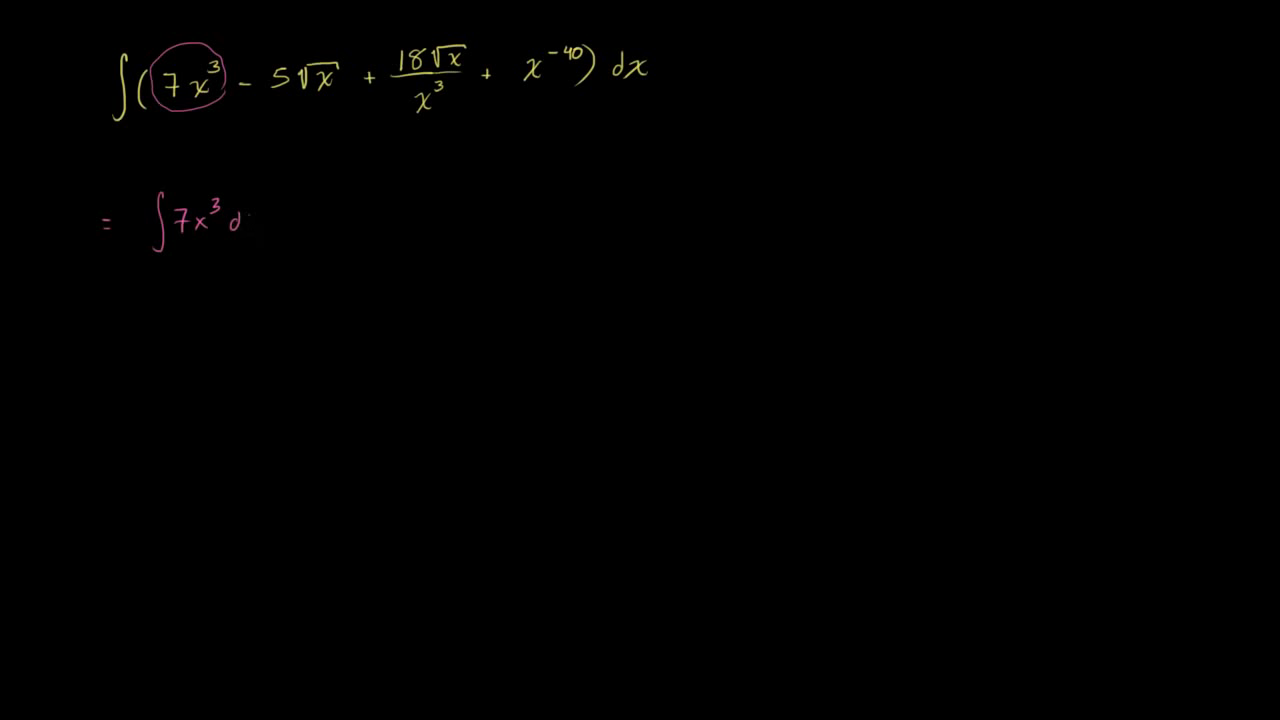 ∫(7x³ - 5√x + 18√x/x³ + x⁻⁴⁰) dx
= ∫7x³ d